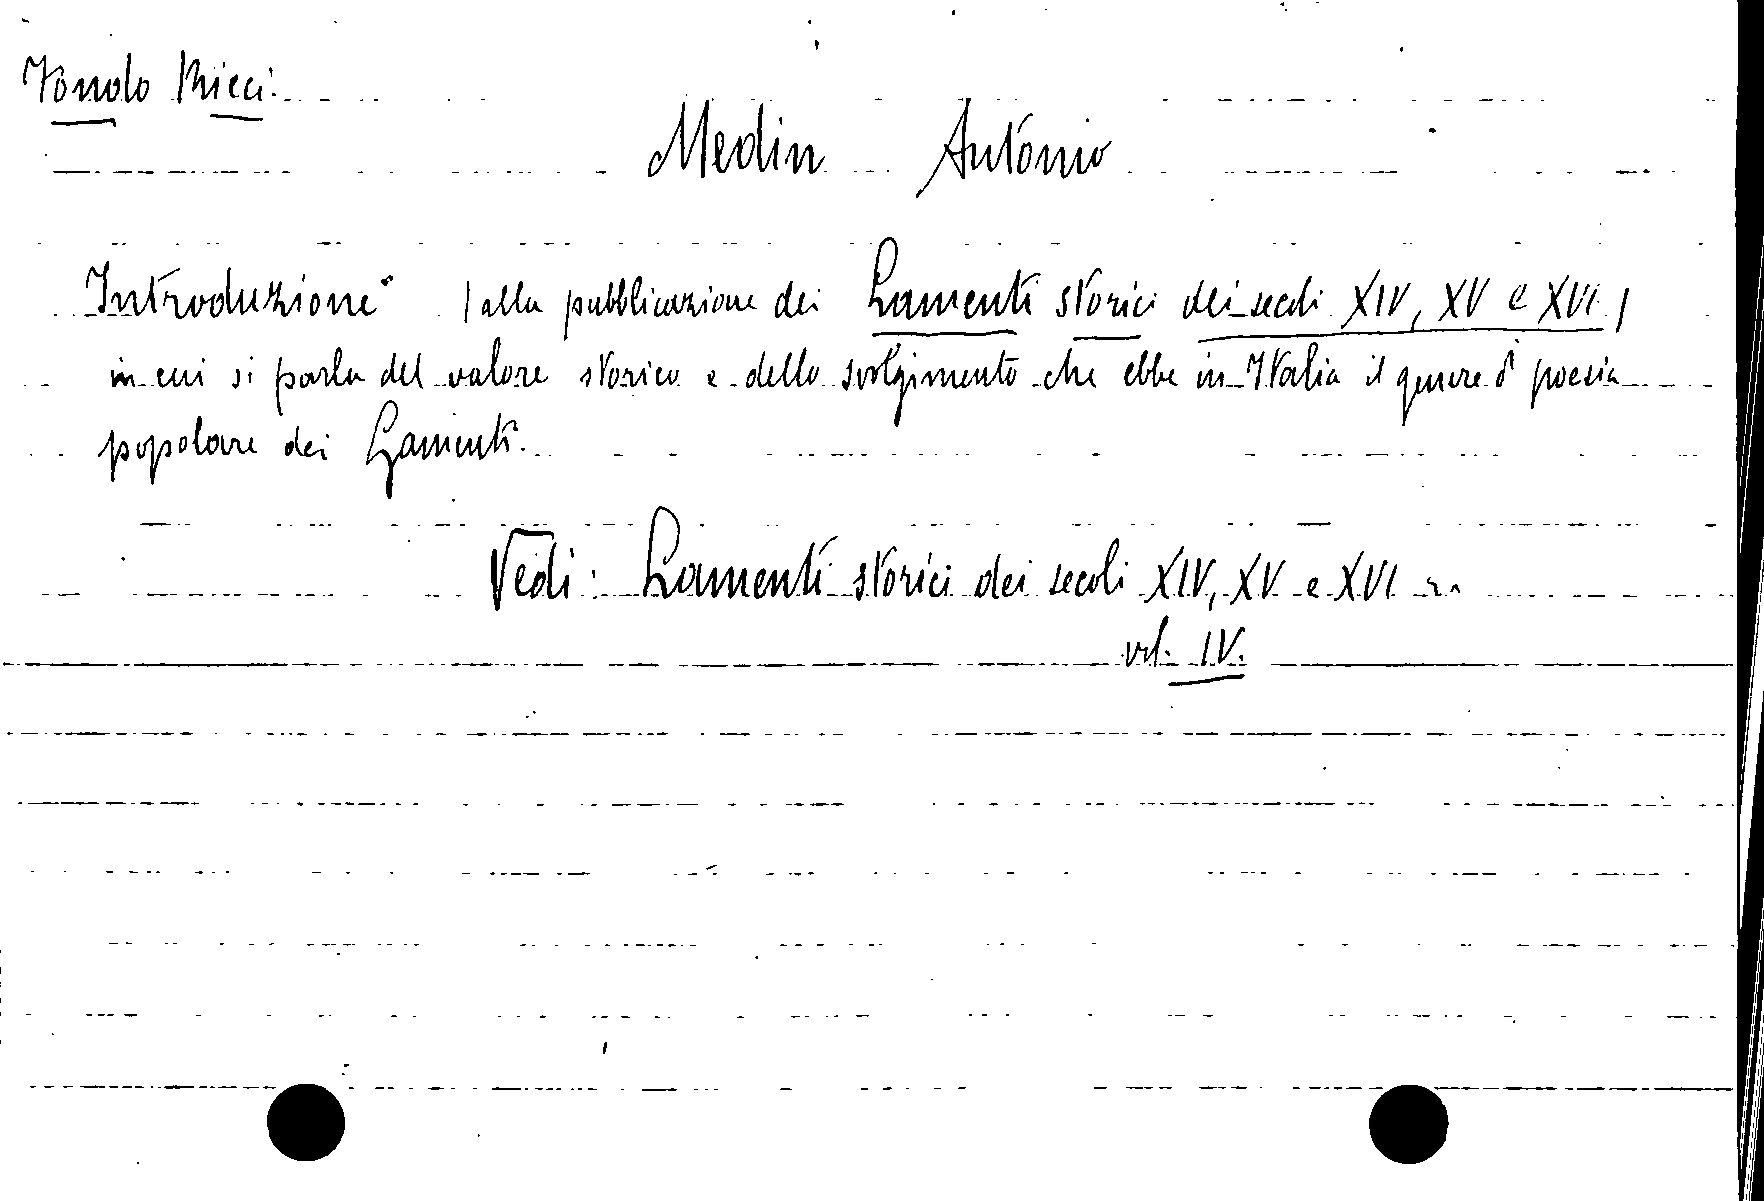 Fondo Ricci.
Medin Antonio
Introduzione / alla pubblicazione dei Lamenti storici dei secoli XIV, XV e XVI /
in cui si parla del valore storico e dello svolgimento che ebbe in Italia il genere di poesia
popolare dei Lamenti.
Vedi: Lamenti storici dei secoli XIV, XV e XVI
vol. IV.